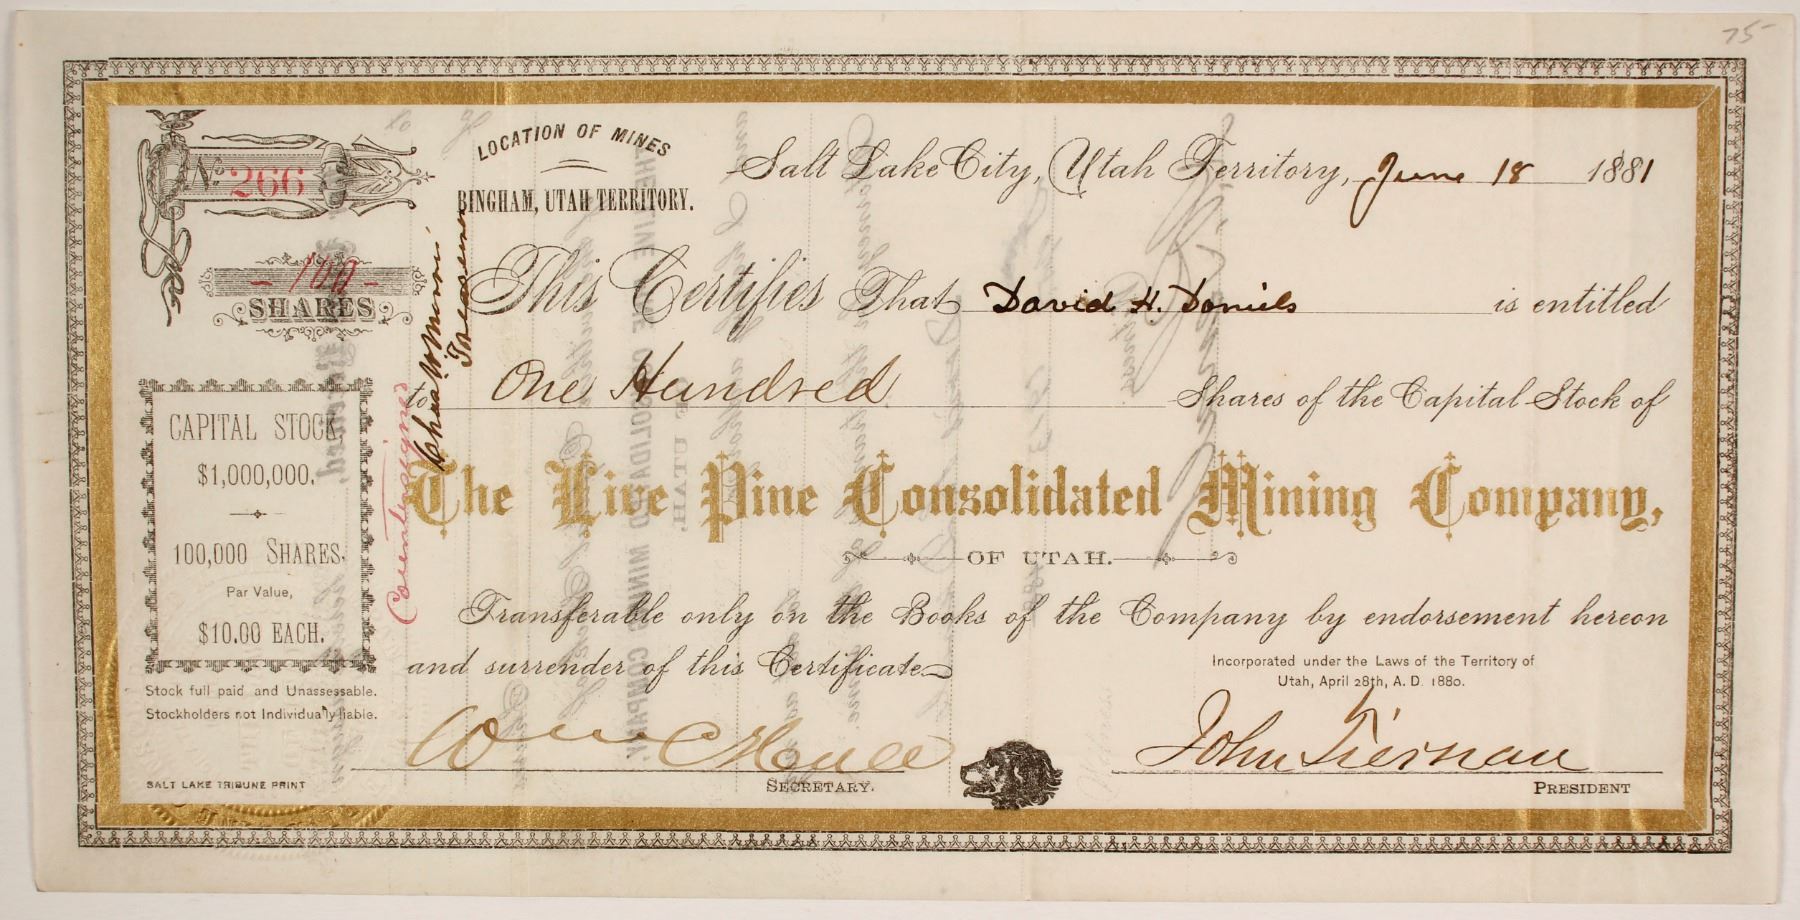 75-
No. 266
LOCATION OF MINES
BINGHAM, UTAH TERRITORY.
Salt Lake City, Utah Territory, June 18 1881
- 100 -
SHARES
This Certifies That David H. Daniels is entitled
to One Hundred Shares of the Capital Stock of
Countersigned
Treasurer
CAPITAL STOCK
$1,000,000.
100,000 SHARES.
Par Value,
$10.00 EACH.
Stock full paid and Unassessable.
Stockholders not Individually liable.
The Live Pine Consolidated Mining Company,
OF UTAH.
Transferable only on the Books of the Company by endorsement hereon
and surrender of this Certificate
Incorporated under the Laws of the Territory of
Utah, April 28th, A. D. 1880.
Wm C Hall
John Tiernan
SECRETARY.
PRESIDENT
SALT LAKE TRIBUNE PRINT